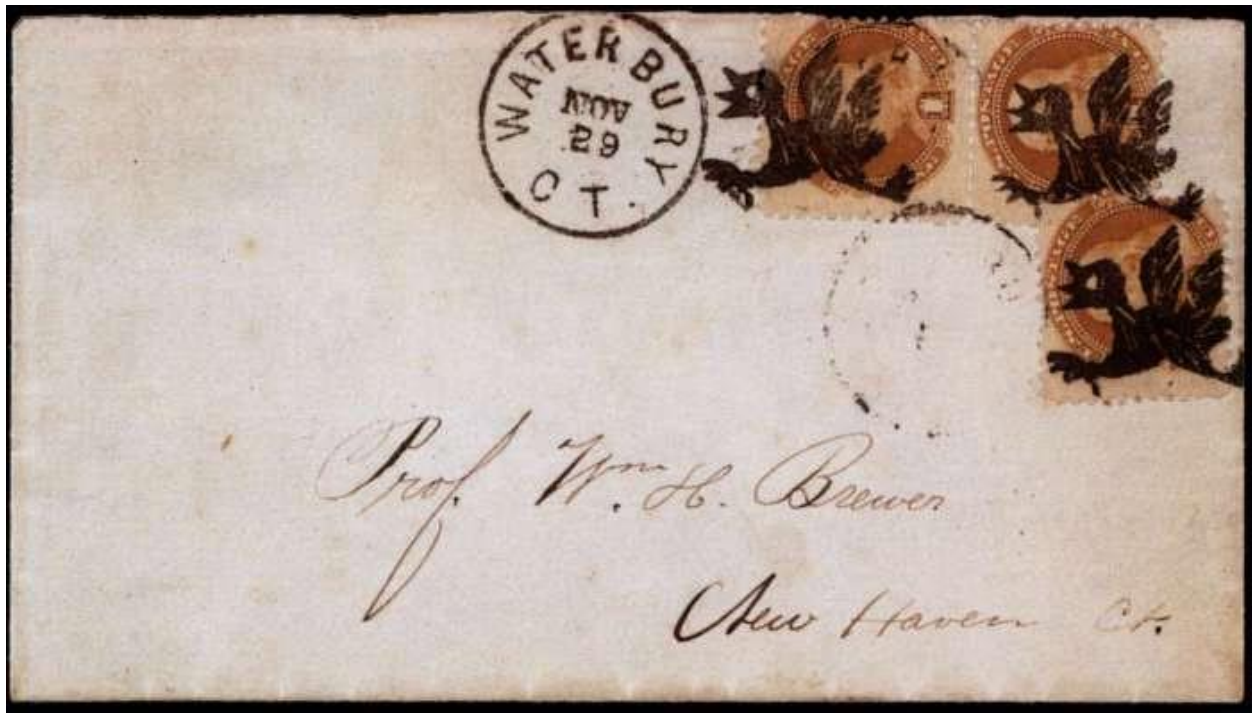 WATERBURY
NOV
29
CT.
Prof. Wm. H. Brewer
New Haven Ct.